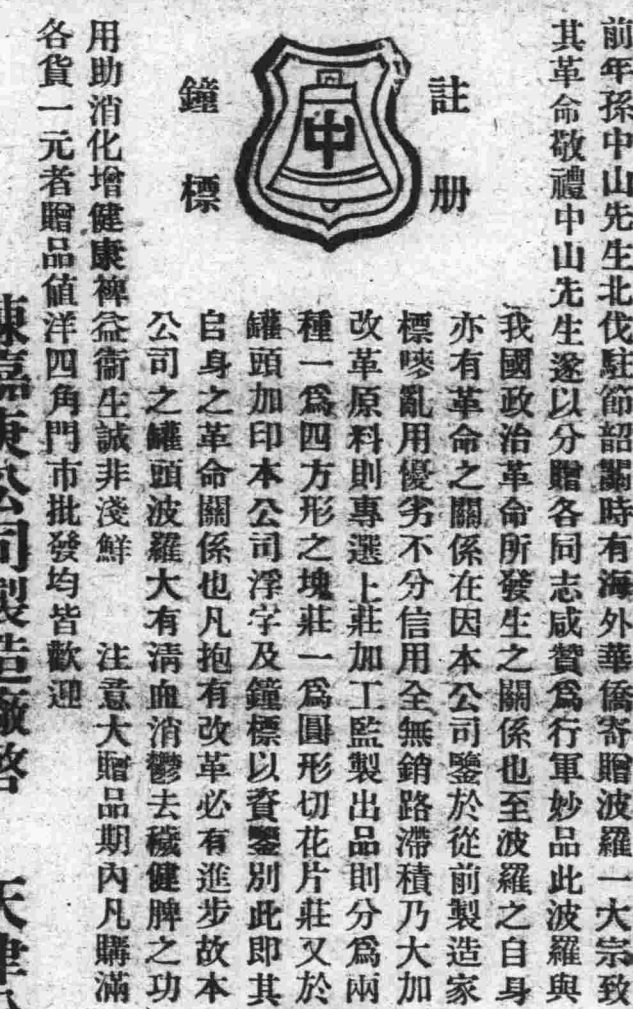 前年孫中山先生北伐駐節韶關時有海外華僑寄贈波羅一大宗致
其革命敬禮中山先生遂以分贈各同志咸贊爲行軍妙品此波羅與
註册
中
鐘標
我國政治革命所發生之關係也至波羅之自身
亦有革命之關係在因本公司鑒於從前製造家
標嘜亂用優劣不分信用全無銷路滯積乃大加
改革原料則專選上莊加工監製出品則分爲兩
種一爲四方形之塊莊一爲圓形切花片莊又於
罐頭加印本公司浮字及鐘標以資鑒別此即其
自身之革命關係也凡抱有改革必有進步故本
公司之罐頭波羅大有清血消鬱去穢健脾之功
用助消化增健康裨益衞生誠非淺鮮 注意大贈品期內凡購滿
各貨一元者贈品値洋四角門市批發均皆歡迎
陳嘉庚公司製造廠啓 天津